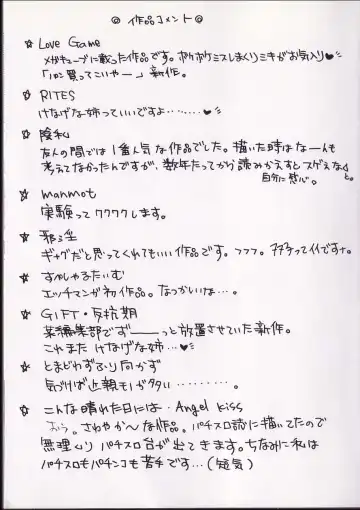 ◎ 作品コメント ◎
☆ Love Game
メガキューブに載った作品です。ボケボケミスしまくりミキがお気入り♥
「パン買ってこいやー」新作。
☆ RITES
けなげな姉っていいですよ‥‥‥♥
☆ 陰私
友人の間では1番人気な作品でした。描いた時はなーんも
考えてなかったんですが、数年たってから読みかえすとスゲェな、と。
自分に感心。
☆ manmot
実験ってワクワクします。
☆ 邪淫
ギャグだと思ってくれてもいい作品です。フフフ。ってイイですナ。
☆ すぺしゃるたいむ
エッチマンガ初作品。なつかしいな…。
☆ GIFT・反抗期
某編集部でず——っと放置させていた新作。
これまた けなげな姉…♥
☆ とまどわずふり向かず
気づけば近親ものが多い‥‥‥‥。
☆ こんな晴れた日には・Angel kiss
おう。さわやか〜な作品。パチスロ誌に描いてたので
無理くりパチスロ台が出てきます。ちなみに私は
パチスロもパチンコも苦手です…(短気)